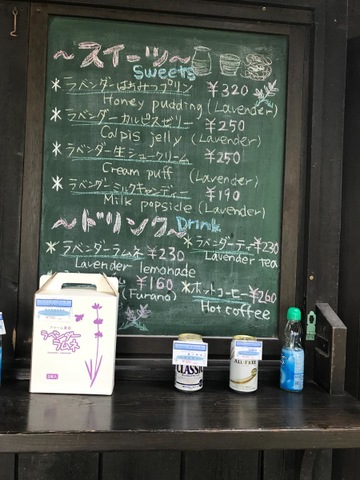 ～スイーツ～
Sweets
＊ラベンダーはちみつプリン ￥320
Honey pudding (Lavender)
＊ラベンダーカルピスゼリー ￥250
Calpis jelly (Lavender)
＊ラベンダー生シュークリーム ￥250
Cream puff (Lavender)
＊ラベンダーミルクキャンディー ￥190
Milk popsicle (Lavender)
～ドリンク～ Drink
＊ラベンダーラムネ ￥230
Lavender lemonade
＊ラベンダーティー ￥230
Lavender tea
￥160
(Furano)
＊ホットコーヒー ￥260
Hot coffee
ラベンダー
ラムネ
CLASSIC